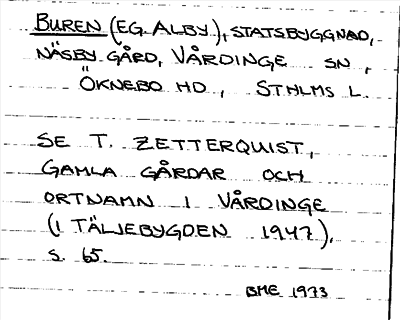 BUREN (EG. ALBY), STATSBYGGNAD,
NÄSBY GÅRD, VÅRDINGE SN,
ÖKNEBO HD, STHLMS L.
SE T. ZETTERQUIST,
GAMLA GÅRDAR OCH
ORTNAMN I VÅRDINGE
(I TÄLJEBYGDEN 1947),
S. 65.
BME 1973